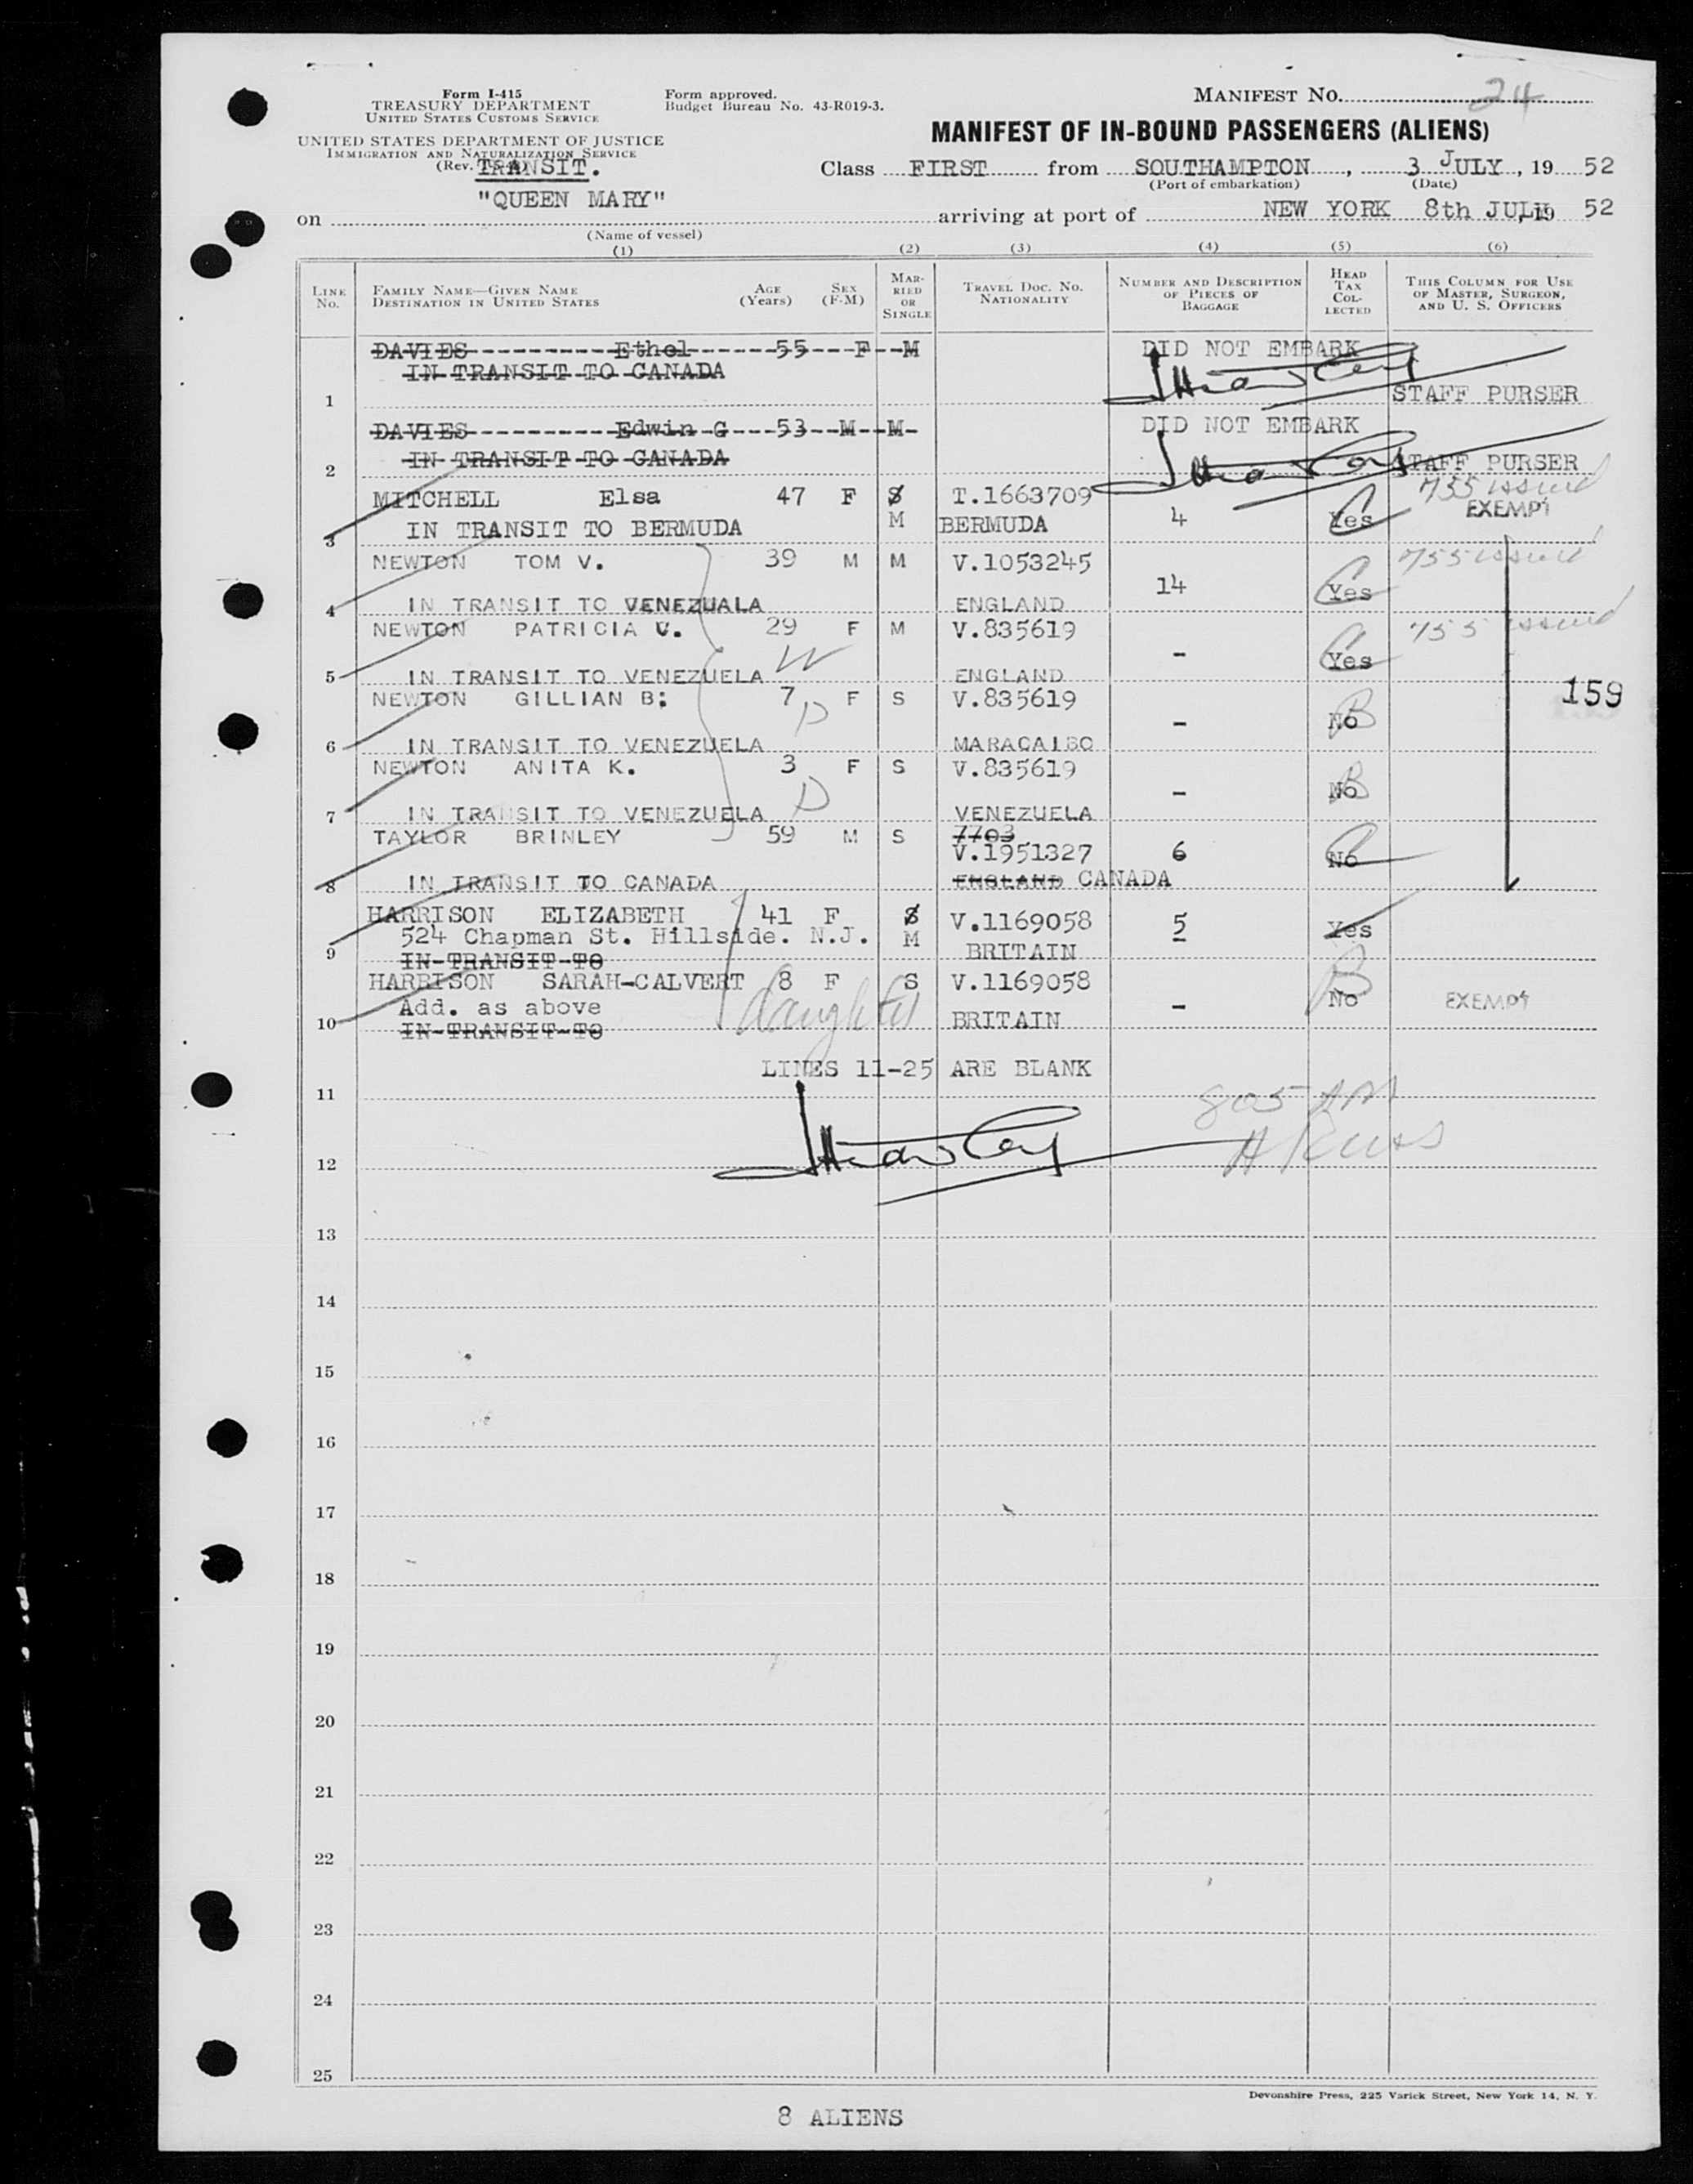 Form I-415
TREASURY DEPARTMENT
UNITED STATES CUSTOMS SERVICE
UNITED STATES DEPARTMENT OF JUSTICE
IMMIGRATION AND NATURALIZATION SERVICE
(Rev. TRANSIT.
Form approved.
Budget Bureau No. 43-R019-3.
MANIFEST NO. 24
MANIFEST OF IN-BOUND PASSENGERS (ALIENS)
Class FIRST from SOUTHAMPTON, 3 JULY, 19 52
(Port of embarkation) (Date)
on "QUEEN MARY" arriving at port of NEW YORK 8th JULY 19 52
(Name of vessel)
(1) (2) (3) (4) (5) (6)
LINE NO. FAMILY NAME—GIVEN NAME DESTINATION IN UNITED STATES AGE (Years) SEX (F-M) MARRIED OR SINGLE TRAVEL DOC. NO. NATIONALITY NUMBER AND DESCRIPTION OF PIECES OF BAGGAGE HEAD TAX COLLECTED THIS COLUMN FOR USE OF MASTER, SURGEON, AND U. S. OFFICERS
DAVIES Ethel 55 F M DID NOT EMBARK
IN TRANSIT TO CANADA
1 STAFF PURSER
DAVIES Edwin G 53 M M DID NOT EMBARK
IN TRANSIT TO CANADA
2 STAFF PURSER
755 issued
MITCHELL Elsa 47 F S T.1663709 4 Yes EXEMPT
3 IN TRANSIT TO BERMUDA M BERMUDA
NEWTON TOM V. 39 M M V.1053245 14 Yes 755 issued
4 IN TRANSIT TO VENEZUALA ENGLAND
NEWTON PATRICIA V. 29 F M V.835619 - Yes 755 issued
W
5 IN TRANSIT TO VENEZUELA ENGLAND
159
NEWTON GILLIAN B: 7 F S V.835619 - No B
D
6 IN TRANSIT TO VENEZUELA MARACAIBO
NEWTON ANITA K. 3 F S V.835619 - No B
D
7 IN TRANSIT TO VENEZUELA VENEZUELA
TAYLOR BRINLEY 59 M S 7703
V.1951327 6 No
8 IN TRANSIT TO CANADA ENGLAND CANADA
HARRISON ELIZABETH 41 F S V.1169058 5 Yes
524 Chapman St. Hillside. N.J. M
9 IN-TRANSIT-TO BRITAIN
HARRISON SARAH-CALVERT 8 F S V.1169058 - No B EXEMPT
Add. as above daughter
10 IN-TRANSIT-TO BRITAIN
LINES 11-25 ARE BLANK
11
805 AM
12
13
14
15
16
17
18
19
20
21
22
23
24
25
Devonshire Press, 225 Varick Street, New York 14, N. Y.
8 ALIENS